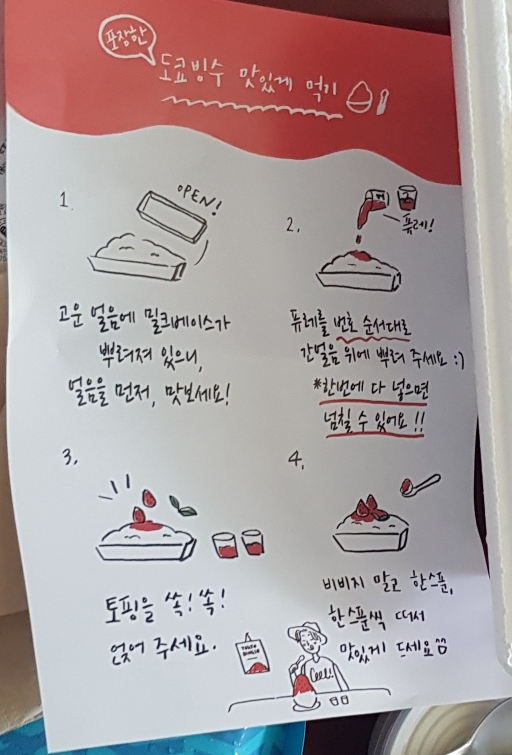 포장한
도쿄빙수 맛있게 먹기
1.
OPEN!
고운 얼음에 밀크베이스가
뿌려져 있으니,
얼음을 먼저, 맛보세요!
2.
퓨레!
퓨레를 번호 순서대로
간얼음 위에 뿌려 주세요 :)
*한번에 다 넣으면
넘칠 수 있어요!!
3.
토핑을 쏙! 쏙!
얹어 주세요.
4.
비비지 말고 한스푼,
한스푼씩 떠서
맛있게 드세요
TOKYO
BINGSU
Cool!